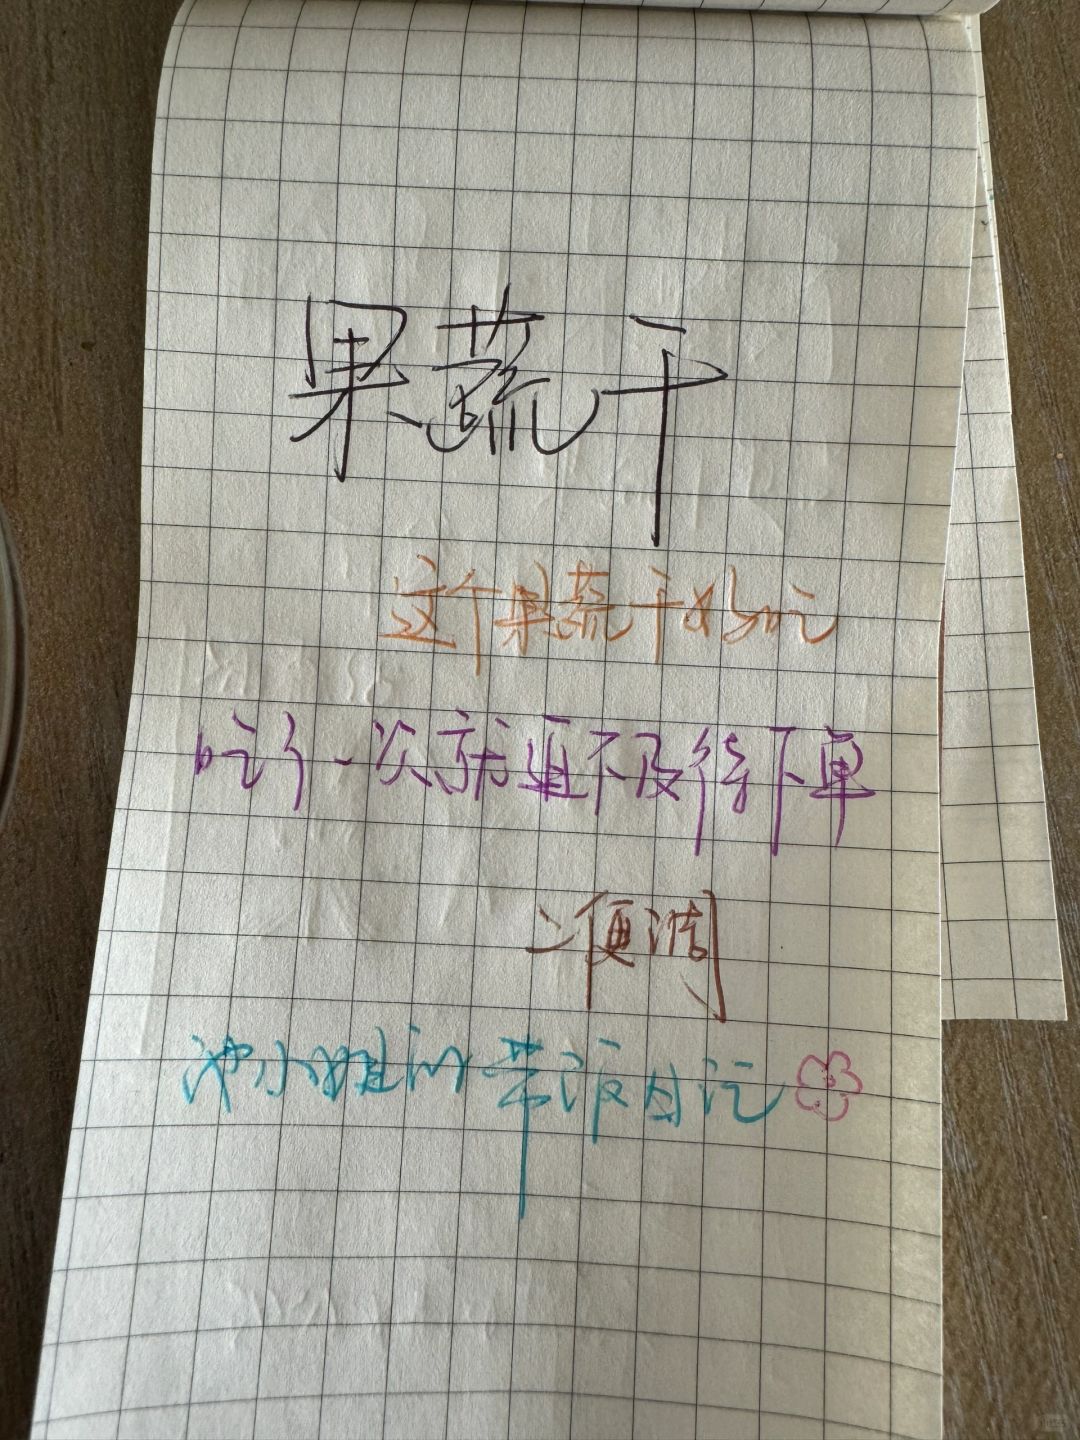 果蔬干
这个果蔬干好吃
吃了一次就迫不及待下单
二便调
池小姐的带饭日记